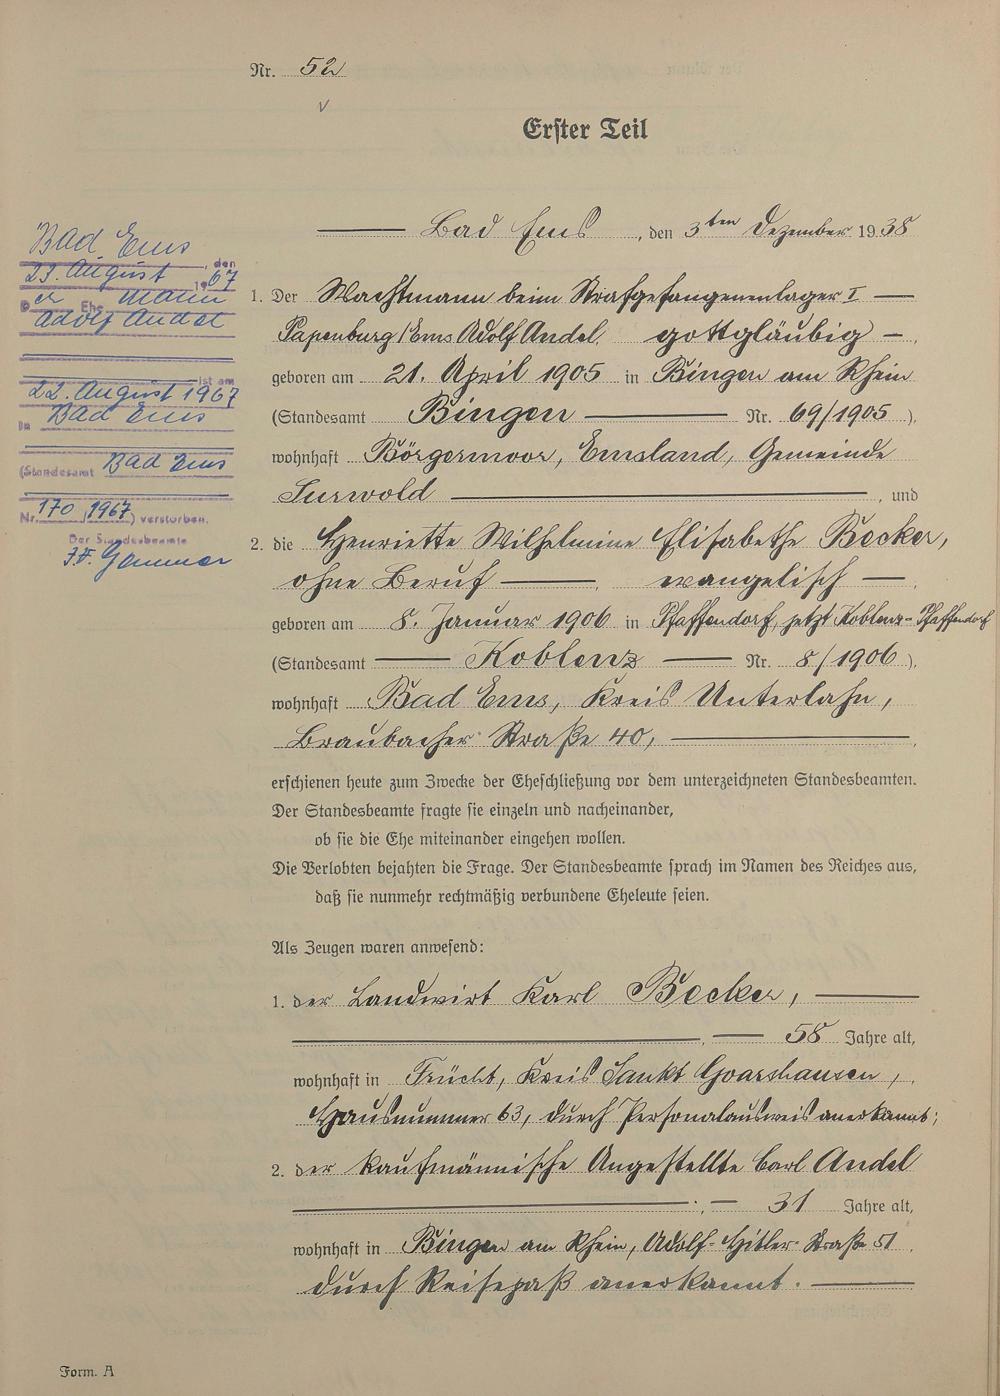 Nr. 52
Erster Teil
Bad Ems, den 3ten Dezember 1938
1. Der Wachtmann beim Strafgefangenenlager I
Papenburg/Ems Adolf Andel, gottgläubig,
geboren am 21. April 1905 in Bingen am Rhein
(Standesamt Bingen Nr. 69/1905),
wohnhaft Börgermoor, Emsland, Gemeinde
Surwold, und
2. die Henriette Wilhelmine Elisabethe Becker,
ohne Beruf, evangelisch,
geboren am 8. Januar 1906 in Pfaffendorf, jetzt Koblenz-Pfaffendorf
(Standesamt Koblenz Nr. 8/1906),
wohnhaft Bad Ems, Kreis Unterlahn,
Braubacher Straße 40,
erschienen heute zum Zwecke der Eheschließung vor dem unterzeichneten Standesbeamten.
Der Standesbeamte fragte sie einzeln und nacheinander,
ob sie die Ehe miteinander eingehen wollen.
Die Verlobten bejahten die Frage. Der Standesbeamte sprach im Namen des Reiches aus,
daß sie nunmehr rechtmäßig verbundene Eheleute seien.
Als Zeugen waren anwesend:
1. der Landwirt Karl Becker,
58 Jahre alt,
wohnhaft in Frücht, Kreis Sankt Goarshausen,
Hausnummer 63, durch Personalausweis anerkannt;
2. der kaufmännische Angestellte Carl Andel
31 Jahre alt,
wohnhaft in Bingen am Rhein, Adolf-Hitler-Straße 51
durch Reisepaß anerkannt.
Form. A
Bad Ems, den
23. August 1967
Der Ehemann
Adolf Andel
ist am
22. August 1967
in Bad Ems
(Standesamt Bad Ems
Nr. 170/1967) verstorben.
Der Standesbeamte